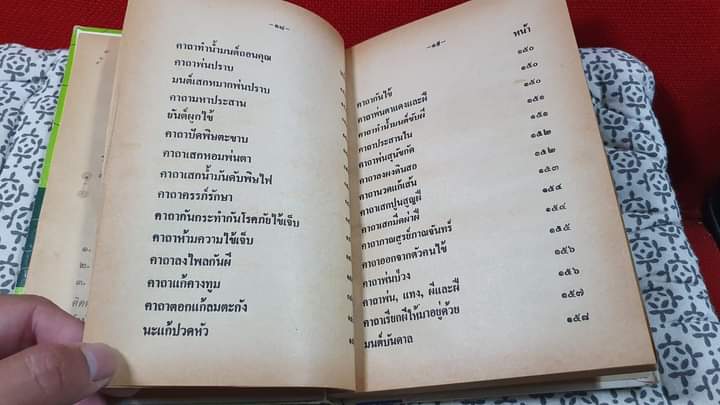 -๑๘-
คาถาทำน้ำมนต์ถอนคุณ
คาถาพ่นปราบ
มนต์เสกหมากพ่นปราบ
คาถามหาประสาน
ยันต์ผูกใช้
คาถาปัดพิษตะขาบ
คาถาเสกหอมพ่นตา
คาถาเสกน้ำมันดับพิษไฟ
คาถาครรภ์รักษา
คาถากันกระทำกันโรคภัยไข้เจ็บ
คาถาห้ามความไข้เจ็บ
คาถาลงไพลกันผี
คาถาแก้คางทูม
คาถาตอกแก้ลมตะกัง
นะแก้ปวดหัว
-๑๙-
หน้า
คาถากันไข้ ๑๕๐
คาถาพ่นตาแดงและผี ๑๕๐
คาถาทำน้ำมนต์ขับผี ๑๕๐
คาถาประสานใน ๑๕๑
คาถาพ่นสุนัขกัด ๑๕๑
คาถาลงผงดินสอ ๑๕๒
คาถานวดแก้เส้น ๑๕๒
คาถาเสกปูนสูญฝี ๑๕๓
คาถาเสกมีดผ่าฝี ๑๕๔
คาถาภาณสูรย์ภาณจันทร์ ๑๕๔
คาถาออกจากตัวคนไข้ ๑๕๕
คาถาพ่นบ้วง ๑๕๖
คาถาพ่น, แทง, ผีและฝี ๑๕๖
คาถาเรียกผีให้มาอยู่ด้วย ๑๕๗
มนต์บันดาล ๑๕๘